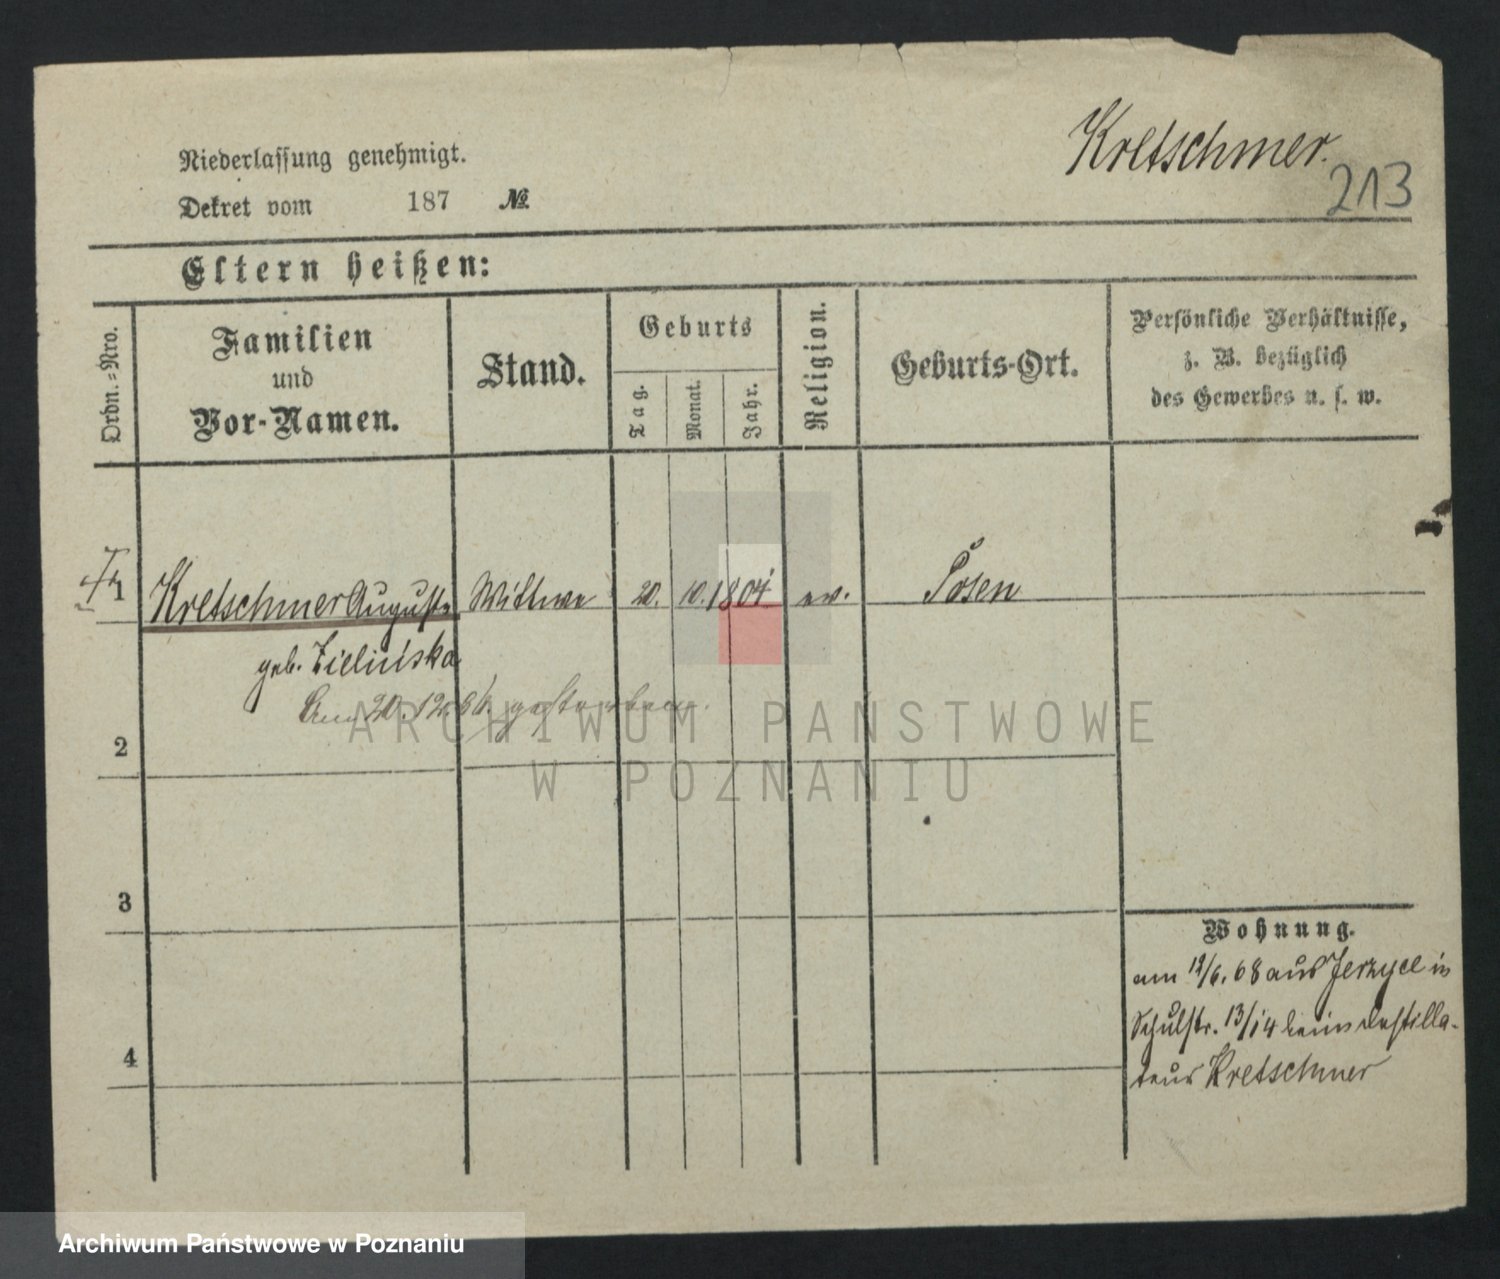 Kretschmer.
213
Niederlassung genehmigt.
Dekret vom 187 No.
Eltern heißen:
Ordn.=Nro.
Familien
und
Vor-Namen.
Stand.
Geburts
Tag.
Monat.
Jahr.
Religion.
Geburts-Ort.
Persönliche Verhältnisse,
z. B. bezüglich
des Gewerbes u. s. w.
1 Kretschmer Auguste Wittwe 20. 10. 1804 ev. Posen
geb. Zielińska
Am 20.12.86. gestorben.
2
3
4
Wohnung.
am 12/6. 68 aus Jerzyce in
Schulstr. 13/14 beim Destilla-
teur Kretschmer
ARCHIWUM PAŃSTWOWE
W POZNANIU
Archiwum Państwowe w Poznaniu